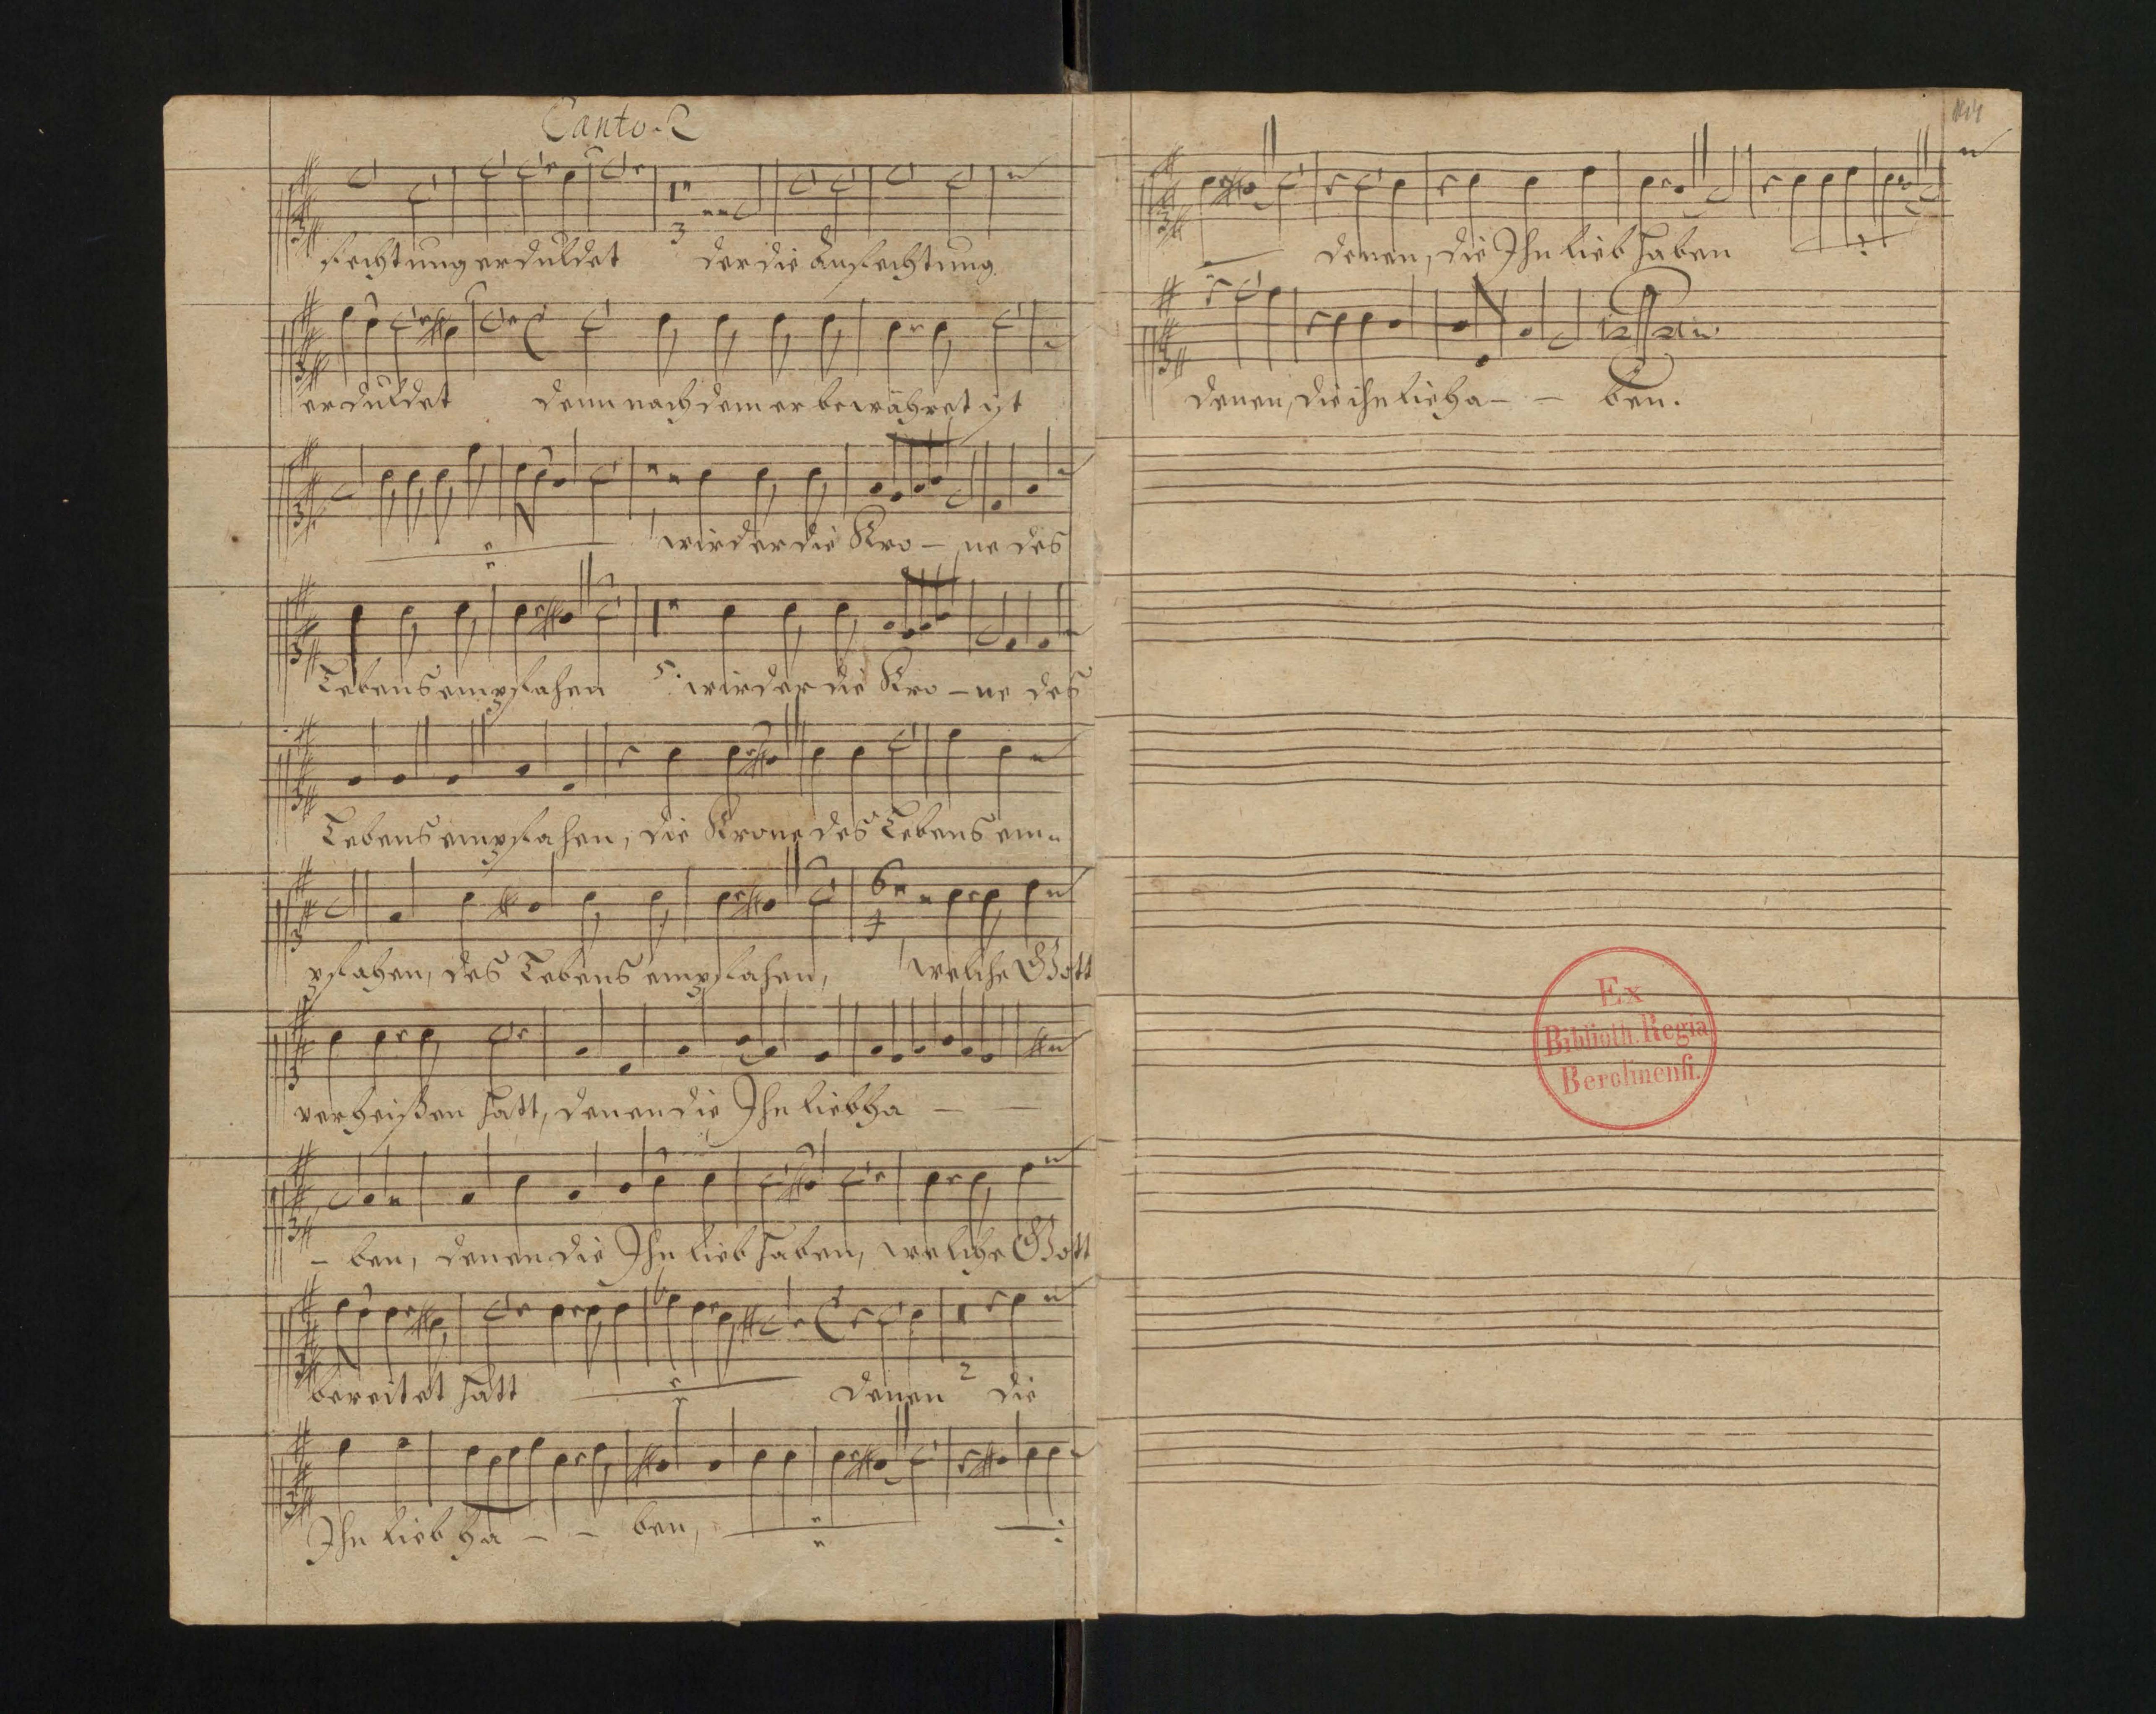 Canto. 2
fechtung erduldet der die Anfechtung
3
erduldet denn nachdem er bewähret ist
wird er die Kro - ne des
Lebens empfahen wird er die Kro - ne des
5
Lebens empfahen, die Krone des Lebens em=
pfahen, des Lebens empfahen, welche Gott
6
4
verheißen hatt, denen die Ihn liebha - -
- ben, denen die Ihn lieb haben, welche Gott
bereitet hatt denen die
2
Ihn lieb ha - - ben,
denen, die Ihn lieb haben
denen, die ihn lieha - - ben.
Ex
Biblioth. Regia
Berolinensi.